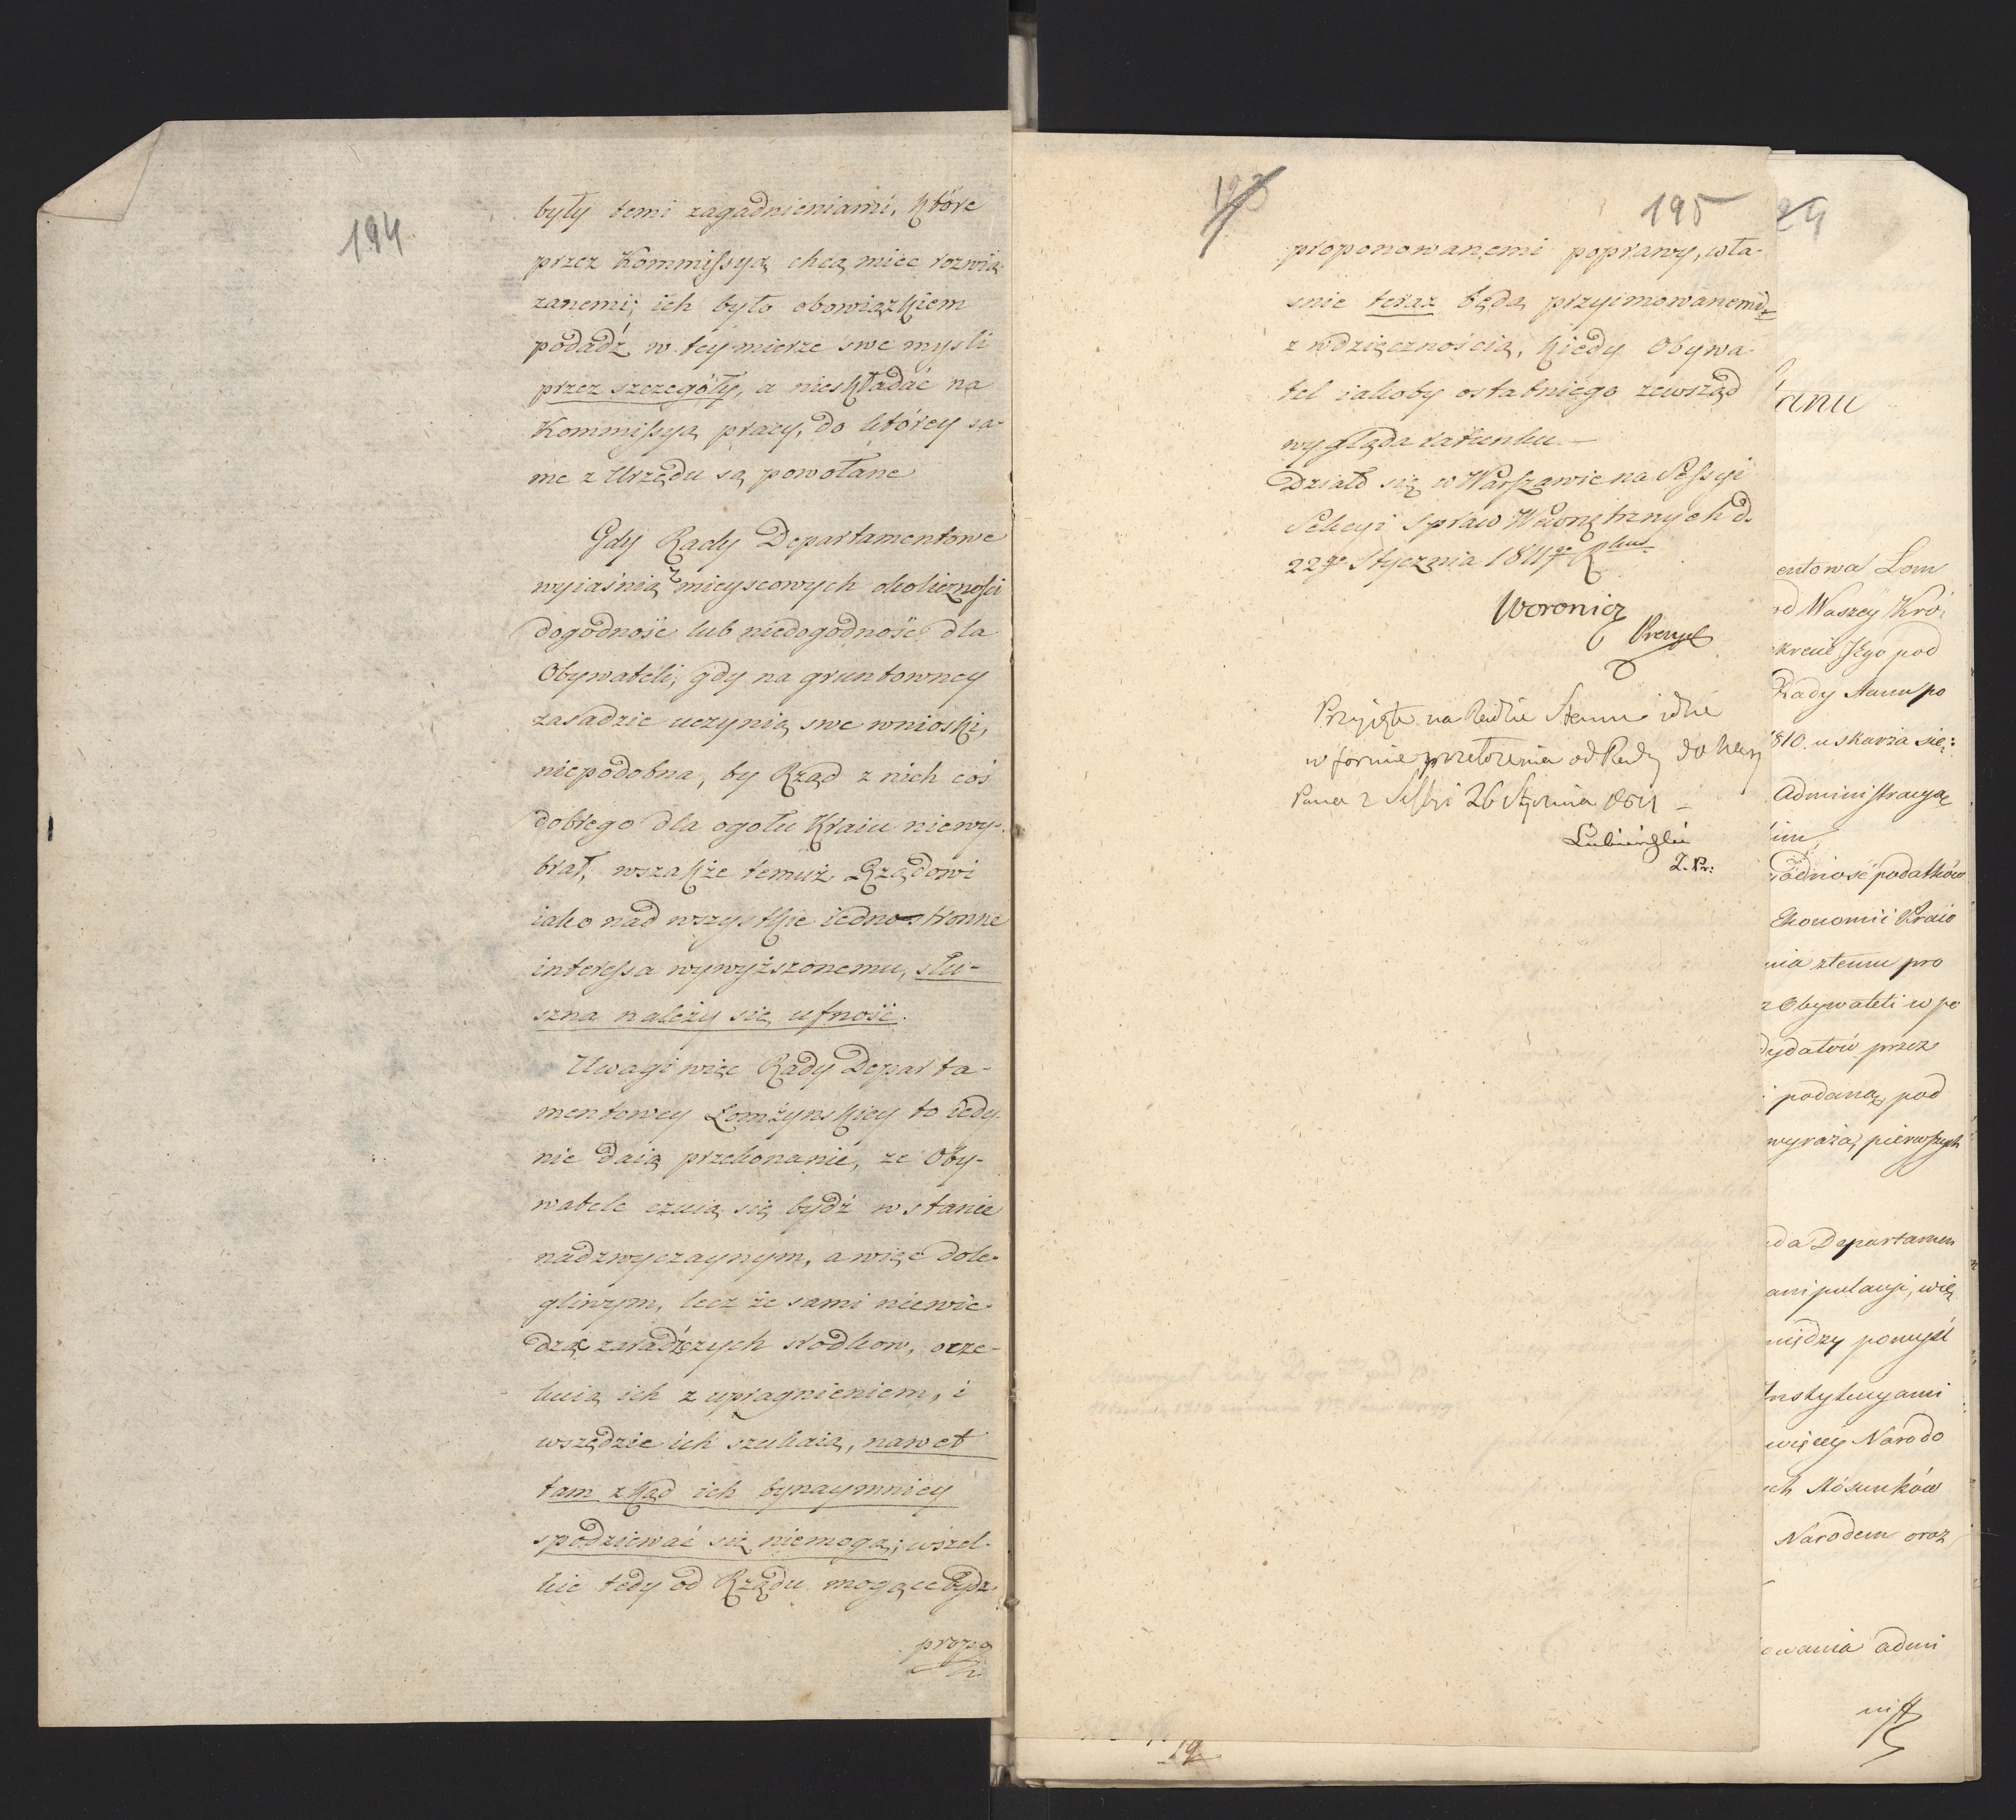 194
były temi zagadnieniami, które
przez Kommissyą chcą mieć rozwią-
zanemi; ich było obowiązkiem
podadź w tey mierze swe mysli
przez szczegóły, a nieskładać na
Kommissyą pracy, do którey sa-
me z Urzędu są powołane
Gdy Rady Departamentowe
wyiaśnią z mieyscowych okoliczności
dogodność lub niedogodność dla
Obywateli, gdy na gruntowney
zasadzie uczynią swe wnioski,
niepodobna, by Rząd z nich coś
dobrego dla ogołu Kraiu niewy-
brał, wszakże temuż Rządowi
iako nad wszystkie iedno-stronne
interessa wywyższonemu, słu-
szna należy się ufność.
Uwagi więc Rady Departa-
mentowey Łomżynskiey to iedy-
nie daią przekonanie, ze Oby-
watele czuią się bydź w stanie
nadzwyczaynym, a więc dole-
gliwym, lecz że sami niewie-
dząc zaradczych srodkow, ocze-
kuią ich z upragnieniem, i
wszędzie ich szukaią, nawet
tam zkąd ich bynaymniey
spodziewać się niemogą; wszel-
kie tedy od Rządu mogące bydz
propo
193
195
proponowanemi poprawy, wła-
snie teraz będą przyimowanemi
z wdzięcznością, kiedy Obywa-
tel iakoby ostatniego zewsząd
wygląda ratunku. —
Działo się w Warszawie na Sessyi
Sekcyi Spraw Wewnętrznych d.
22go Stycznia 1811go Rku
Woronicz
Prezyd
Przyjęte na Radzie Stanu i idzie
w formie przełożenia od Rady do Nay
Pana z Sessyi 26 Stycznia 1811 —
Łubieński
Z. Pr:
19
24
anu
entowa Łom
od Waszey Kró-
krecie Jego pod
Rady Stanu po
1810. uskarża się:
Administracyą
im,
odność podatków
Ekonomii Kraio
nia ztemu pro
z Obywateli w po
dydatów przez
podaną, pod
wyraża, pierwszych
da Departamen
anipulacyi, wię
między pomyśl
Instytucyami
więcey Narodo
ch Stósunków
Narodem oraz
owania admi
nist